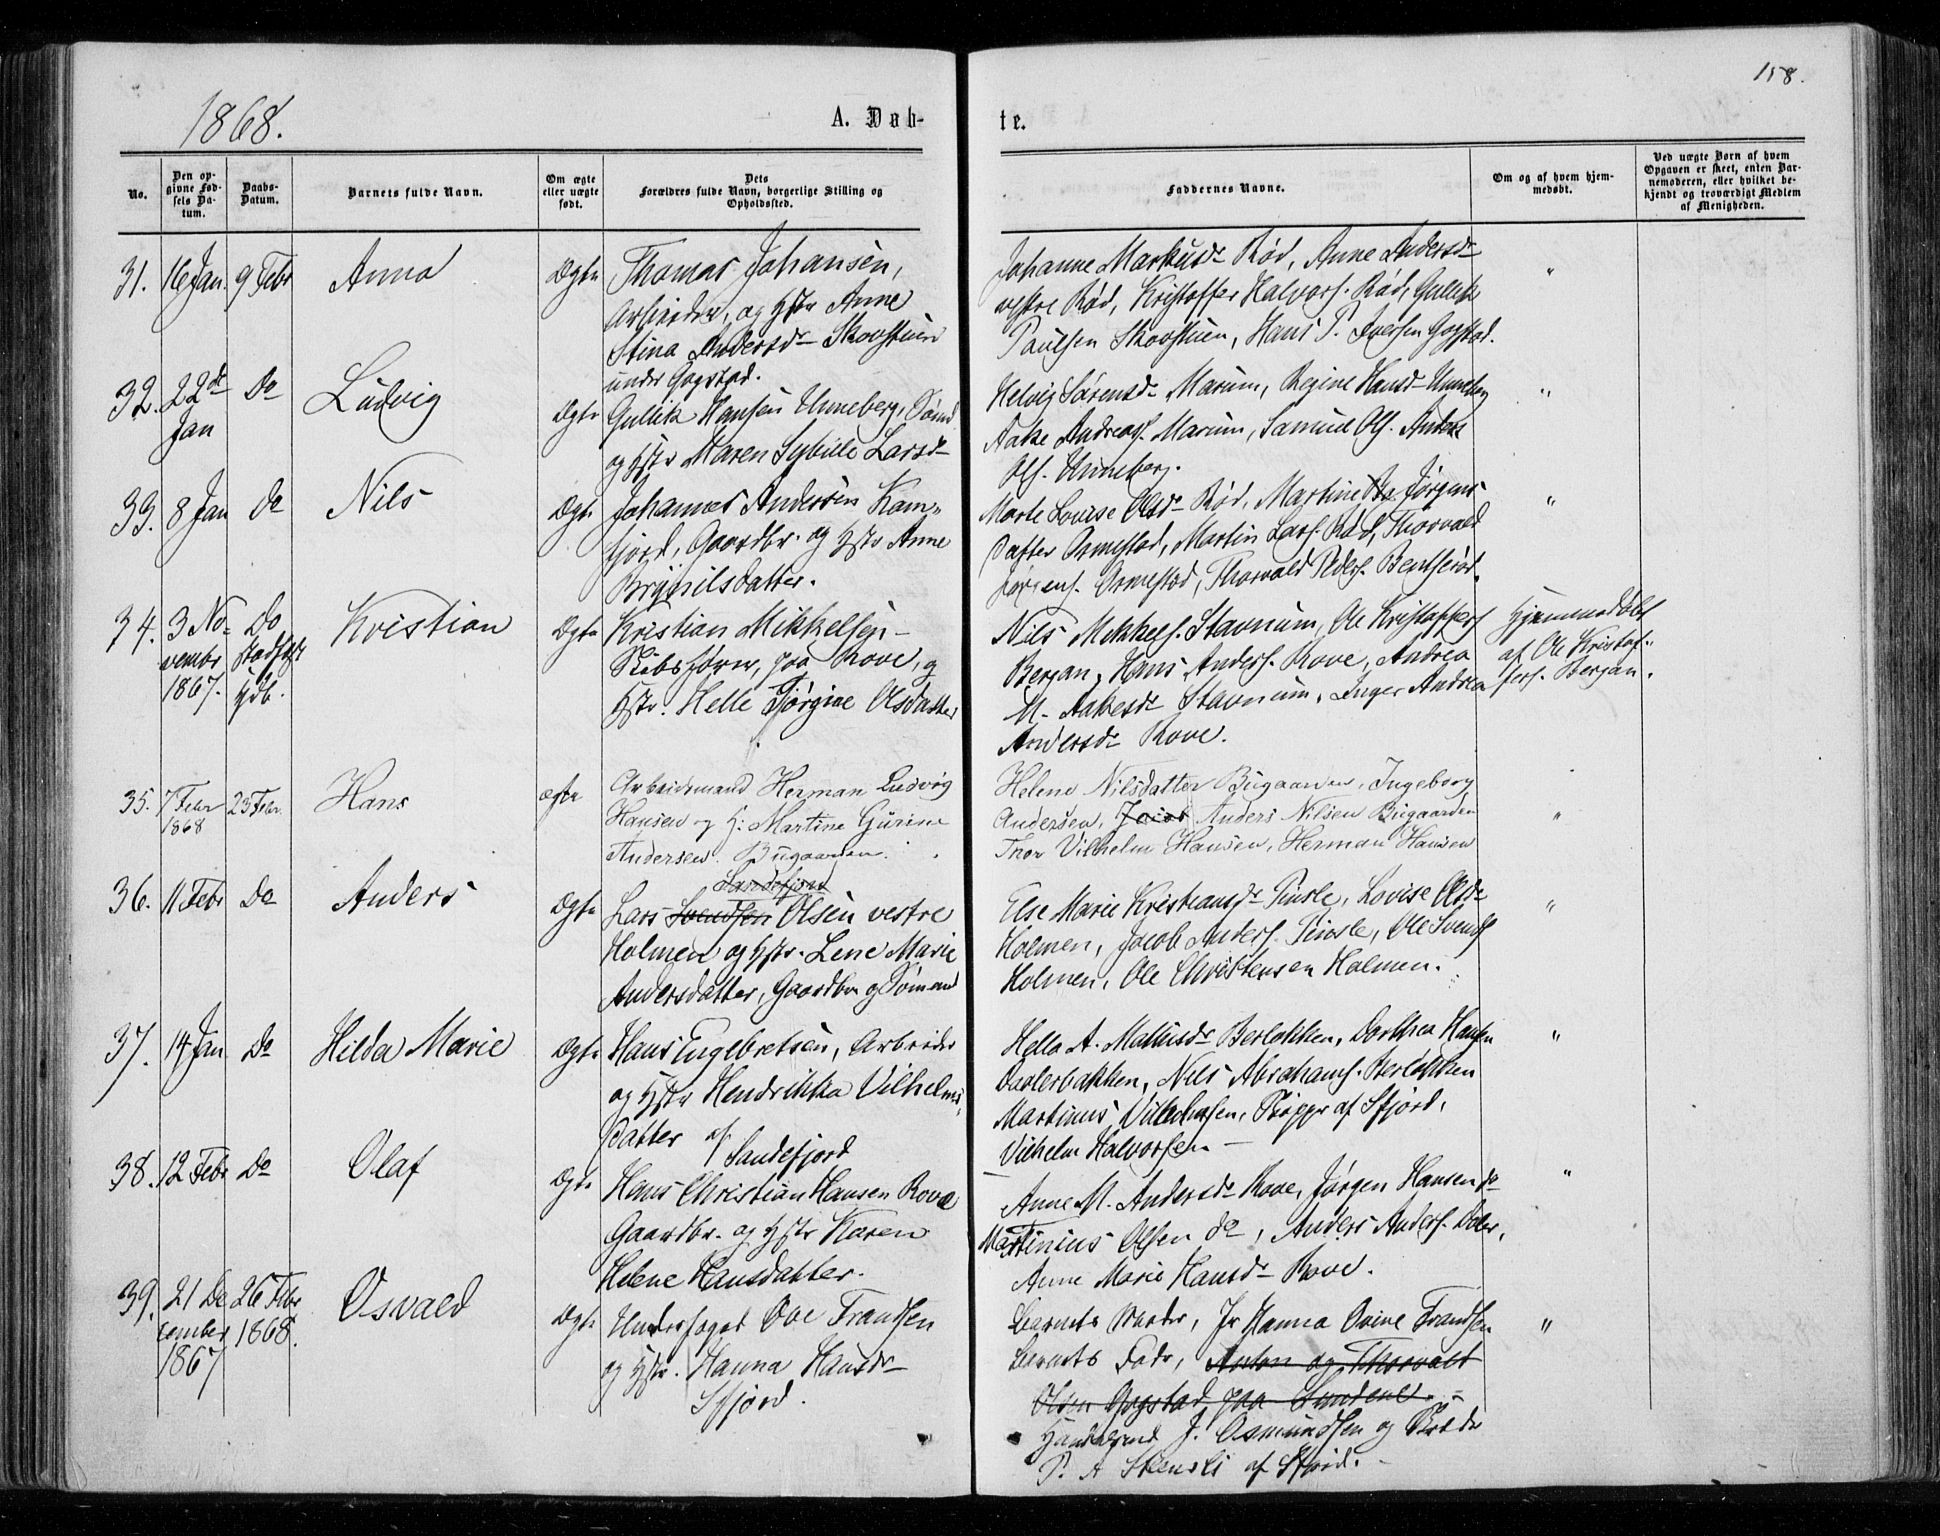 158.
1868.
A. Døb-
te.
No.
Den op-
givne Fød-
sels Da-
tum.
Daabs-
Datum.
Barnets fulde Navn.
Om ægte
eller uægte
født.
Dets
Forældres fulde Navn, borgerlige Stilling og
Opholdssted.
Faddernes Navne.
Om og af hvem hjem-
medøbt.
Ved uægte Børn af hvem
Opgaven er skeet, enten Bar-
nemoderen, eller hvilket be-
kjendt og troværdigt Medlem
af Menigheden.
31. 16 Jan. 9 Febr Anna Ægte
Thomas Johansen,
Arbeider, og Hstr Anne
Stina Andersdr Skovstuen
under Gogstad.
Johanne Markusdr Rød, Anne Andersdr
vestre Rød, Kristoffer Halvors. Rød, Gullik
Paulsen Skovstuen, Hans P. Iversen Gogstad.
"
32. 22de Jan Do Ludvig Ægte
Gullik Hansen Unneberg, Sømd
og Hstr Maren Sybille Larsdr
Helvig Sørensdr Marum, Regine Hansdr Unneberg
Aake Andreas. Marum, Samuel Ols. Anders
Ols. Unneberg.
"
33. 8 Jan Do Nils Ægte
Johannes Andersen Kam-
fjord, Gaardbr. og Hstr Anne
Brynilsdatter.
Marte Lovise Olsdr Rød, Martine Jørgens
Datter Ormestad, Martin Lars. Rød, Thorvald
Jørgens. Ormestad, Thorvald Peders. Bentserød.
"
34. 3 No-
vembr
1867.
Do
stadfæst
Hdb.
Kristian Ægte
Kristian Mikkelsen
Skibsfører, paa Rove, og
Hstr. Helle Jørgine Olsdatter
Nils Mikkels. Stavnum, Ole Kristoffers
Bergan, Hans Anders. Rove, Andrea
M. Aakesdr Stavnum, Inger Andrea
Andersdr Rove.
Hjemmedøbt
af Ole Kristof-
fers. Bergan.
35. 7 Febr
1868
23 Febr. Hans ægte
Arbeidsmand Herman Ludvig
Hansen og H: Martine Gurine
Andersen. Bugaarden.
Helene Nilsdatter Bugaarden, Ingeborg
Andersen, Anders Nilsen Bugaarden
Thor Vilhelm Hansen, Herman Hansen
"
36. 11 Febr Do Anders Ægte
Sandefjord
Lars Svendsen Olsen vestre
Holmen og Hstr. Lene Marie
Andersdatter, Gaardbr og Sømand
Else Marie Kristiansdr Pinsle, Lovise Olsdr
Holmen, Jacob Anders. Pinsle, Ole Svends
Holmen, Ole Christensen Holmen.
"
37. 14 Jan Do Hilda Marie Ægte
Hans Engebretsen, Arbeider
og Hstr Hendrikka Vilhelms
Datter af
Sandefjord
Helle A. Mathisdr Berløkken, Dorthea Hansen
Daalerbakken, Nils Abrahams. Berløkken
Martinus af Sfjord,
Vilhelm Halvorsen
"
38. 12 Febr Do Olaf Ægte
Hans Christian Hansen Rove
Gaardbr. og Hstr Karen
Helene Hansdatter.
Anne M. Andersdr Rove, Jørgen Hansen do
Martinius Olsen do, Anders Anders. Daler,
Anne Marie Hansdr Rove.
"
39. 21 De
cember
1867
26 Febr
1868.
Osvald Ægte
Underfoged Ove Frandsen
og Hstr. Hanna Hansdr
Sfjord.
Barnets Moder, Jr Hanna Ovine Frandsen
Barnets Fader, Anton og Thorvald
Olsen Gogstad paa Sundene
J. Osmundsen og
P. A af Sfjord.
"